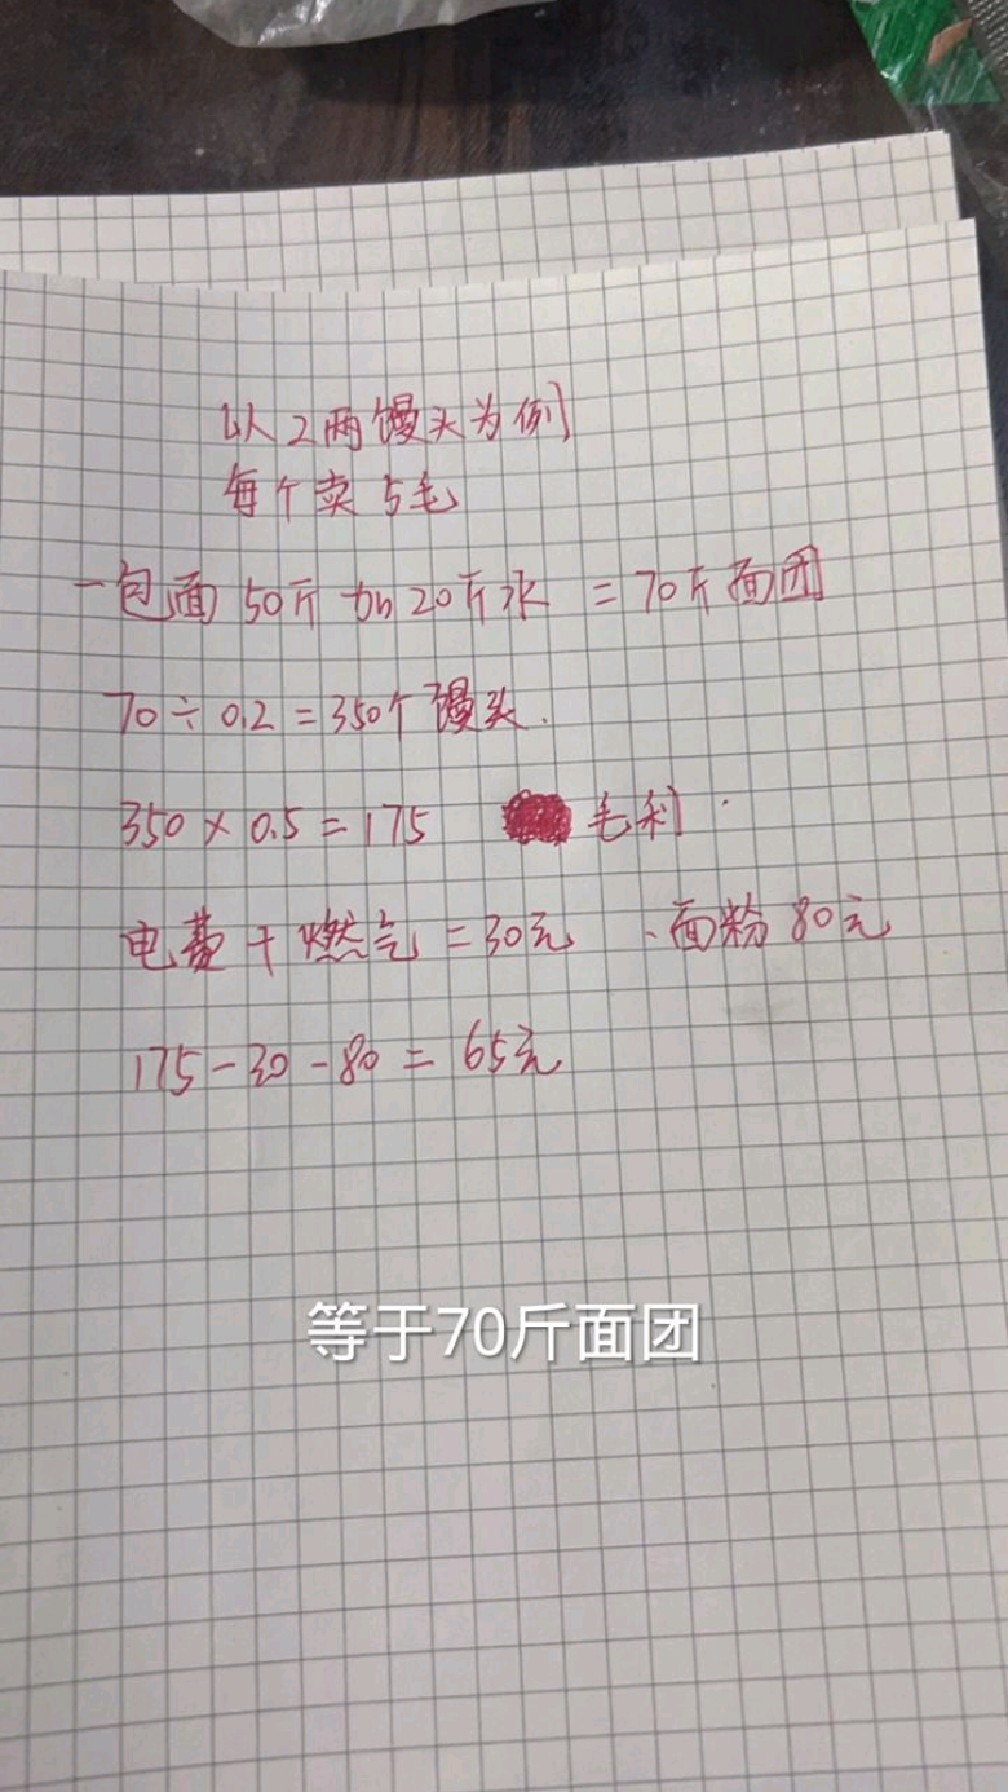 以2两馒头为例
每个卖5毛
一包面50斤加20斤水=70斤面团
70÷0.2=350个馒头.
350×0.5=175 毛利
电费+燃气=30元、面粉80元
175-30-80=65元
等于70斤面团